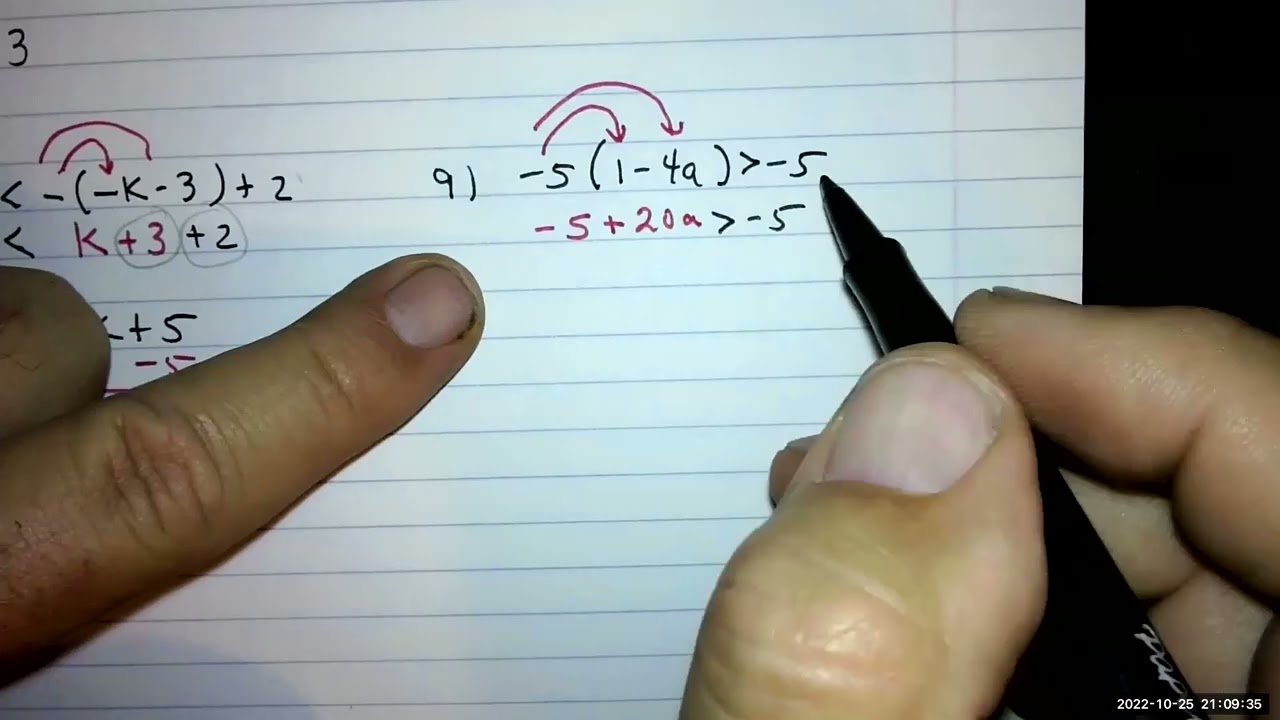 3
< -(-K-3)+2
< K+3+2
+5
-5
9) -5(1-4a)>-5
-5+20a>-5
2022-10-25 21:09:35